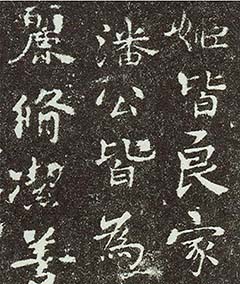 姬皆良家
潘公皆為
麗脩潔善